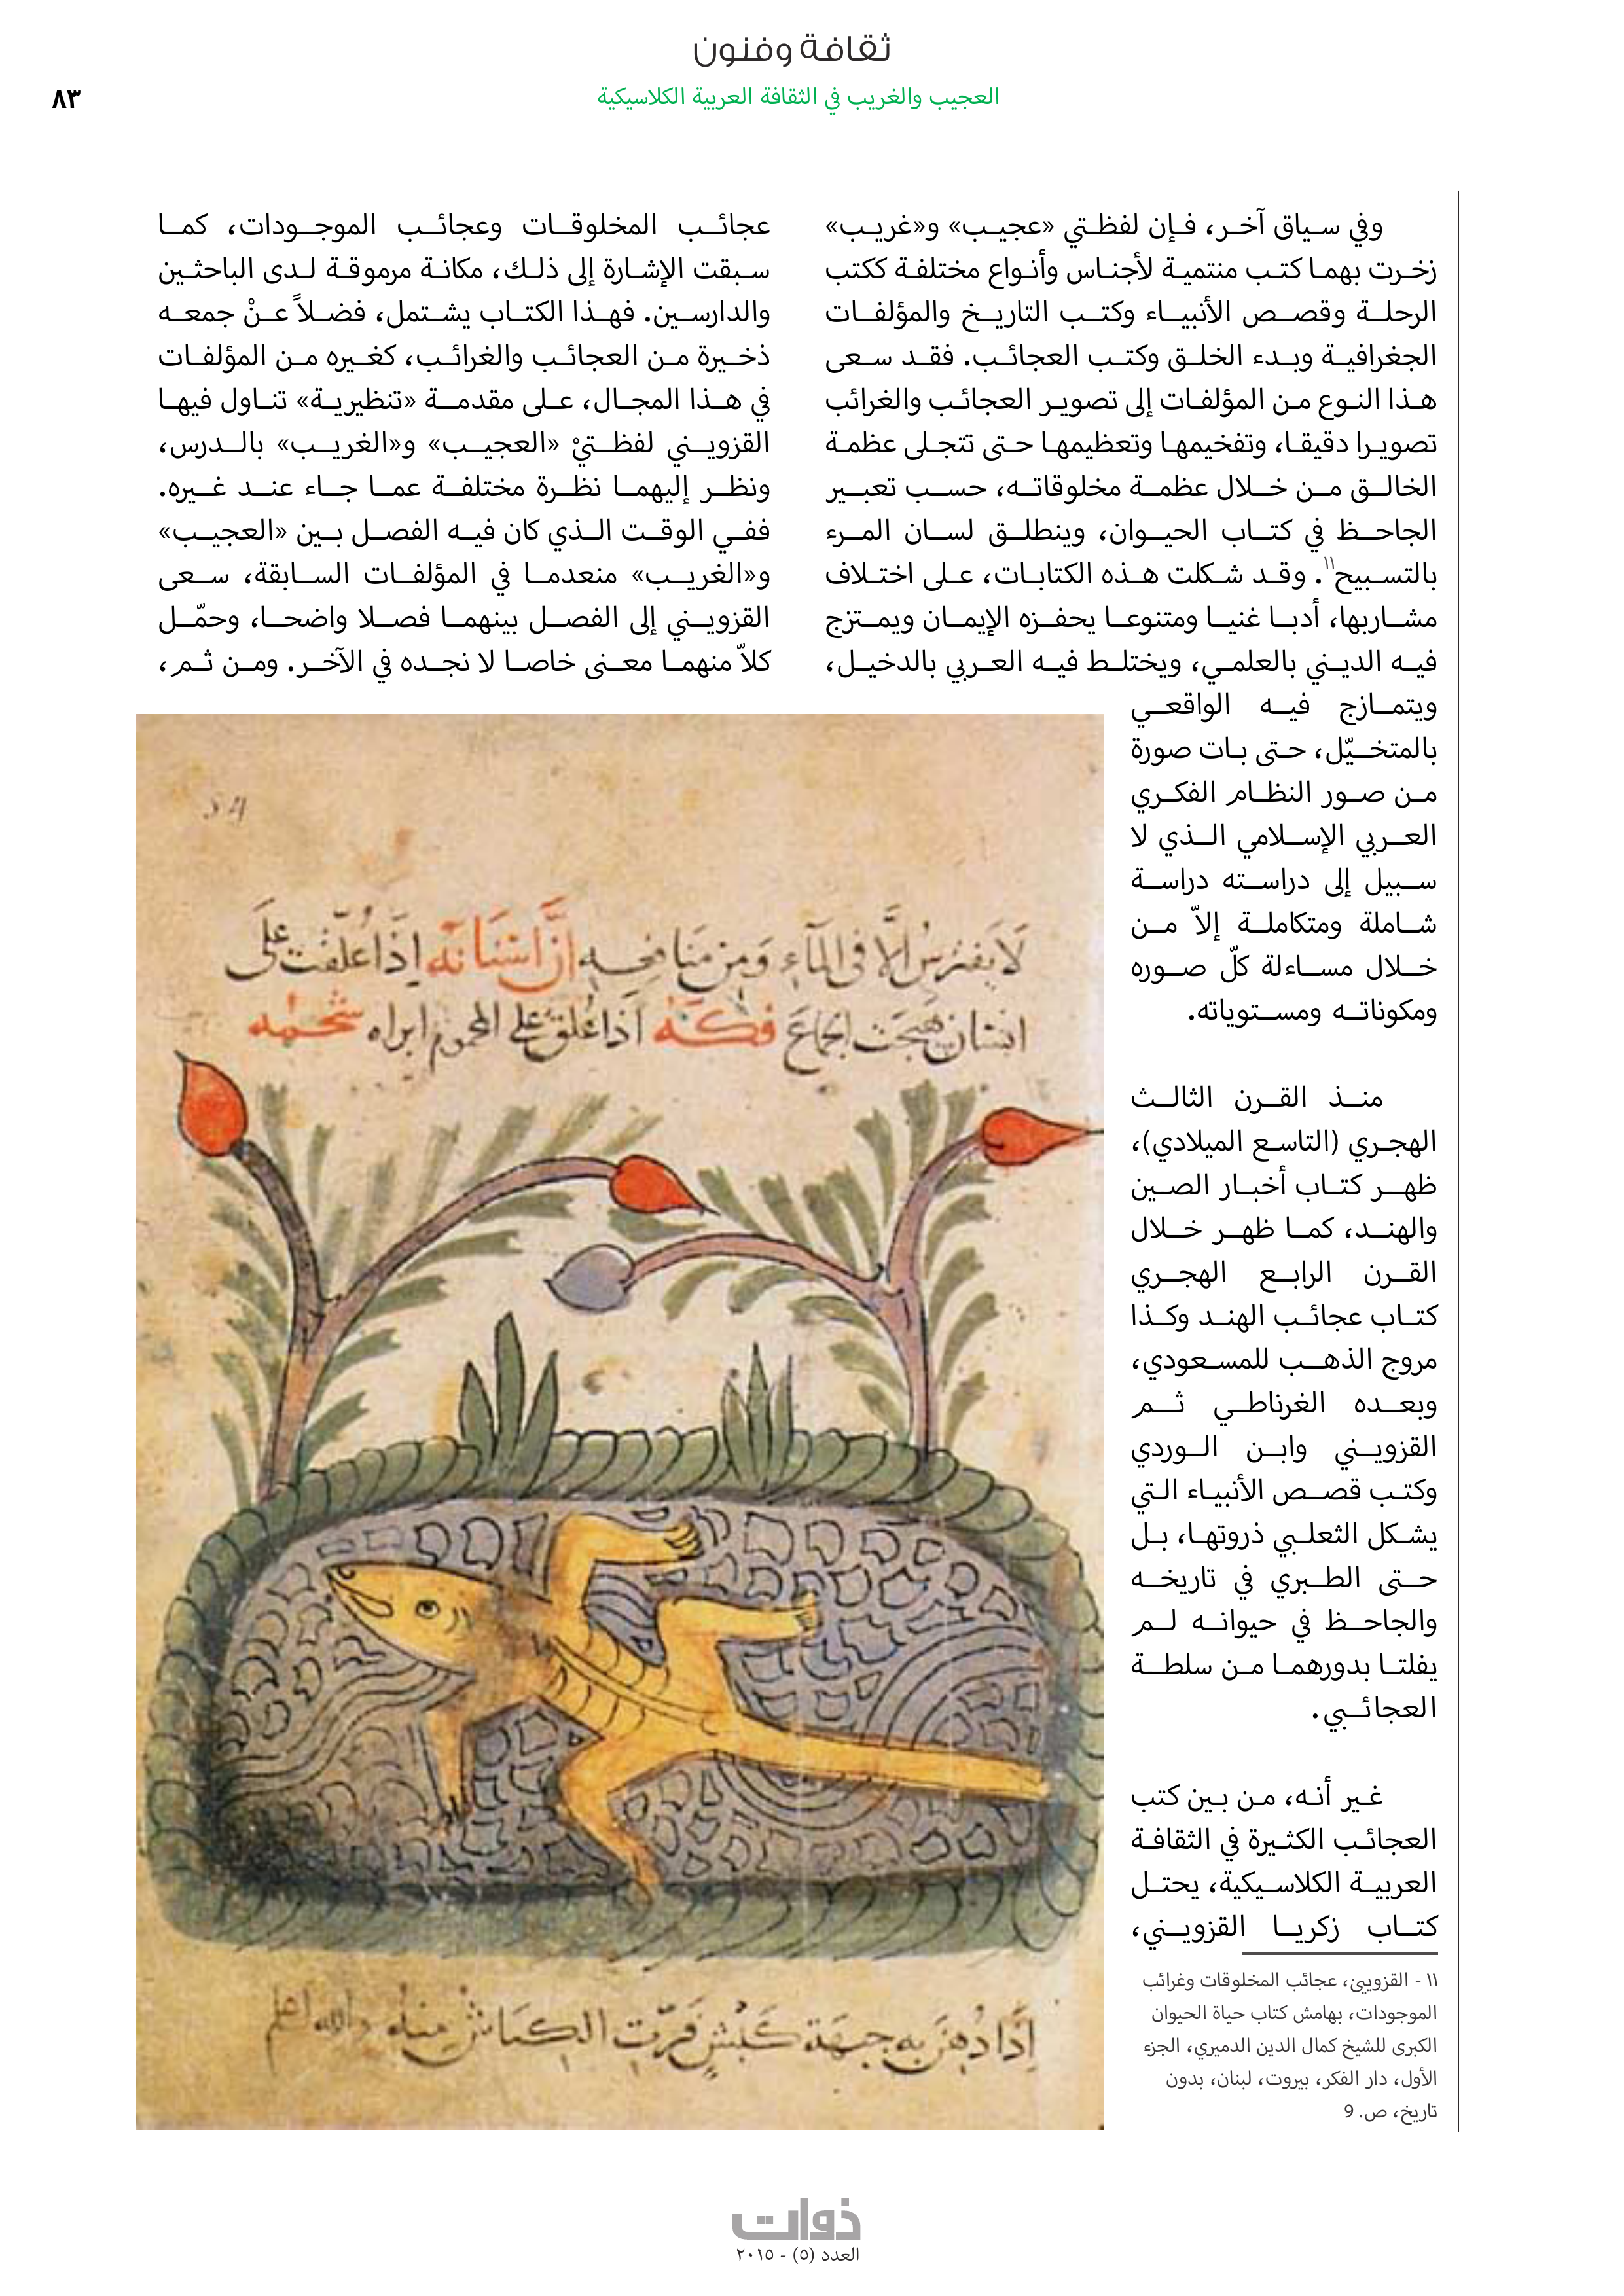 ثقافة وفنون
العجيب والغريب في الثقافة العربية الكلاسيكية
٨٣
وفي سياق آخر، فإن لفظتي «عجيب» و«غريب»
زخرت بهما كتب منتمية لأجناس وأنواع مختلفة ككتب
الرحلة وقصص الأنبياء وكتب التاريخ والمؤلفات
الجغرافية وبدء الخلق وكتب العجائب. فقد سعى
هذا النوع من المؤلفات إلى تصوير العجائب والغرائب
تصويرا دقيقا، وتفخيمها وتعظيمها حتى تتجلى عظمة
الخالق من خلال عظمة مخلوقاته، حسب تعبير
الجاحظ في كتاب الحيوان، وينطلق لسان المرء
بالتسبيح١١. وقد شكلت هذه الكتابات، على اختلاف
مشاربها، أدبا غنيا ومتنوعا يحفزه الإيمان ويمتزج
فيه الديني بالعلمي، ويختلط فيه العربي بالدخيل،
ويتمازج فيه الواقعي
بالمتخيّل، حتى بات صورة
من صور النظام الفكري
العربي الإسلامي الذي لا
سبيل إلى دراسته دراسة
شاملة ومتكاملة إلاّ من
خلال مساءلة كلّ صوره
ومكوناته ومستوياته.
منذ القرن الثالث
الهجري (التاسع الميلادي)،
ظهر كتاب أخبار الصين
والهند، كما ظهر خلال
القرن الرابع الهجري
كتاب عجائب الهند وكذا
مروج الذهب للمسعودي،
وبعده الغرناطي ثم
القزويني وابن الوردي
وكتب قصص الأنبياء التي
يشكل الثعلبي ذروتها، بل
حتى الطبري في تاريخه
والجاحظ في حيوانه لم
يفلتا بدورهما من سلطة
العجائبي.
غير أنه، من بين كتب
العجائب الكثيرة في الثقافة
العربية الكلاسيكية، يحتل
كتاب زكريا القزويني،
١١ - القزويني، عجائب المخلوقات وغرائب
الموجودات، بهامش كتاب حياة الحيوان
الكبرى للشيخ كمال الدين الدميري، الجزء
الأول، دار الفكر، بيروت، لبنان، بدون
تاريخ، ص. 9
عجائب المخلوقات وعجائب الموجودات، كما
سبقت الإشارة إلى ذلك، مكانة مرموقة لدى الباحثين
والدارسين. فهذا الكتاب يشتمل، فضلاً عنْ جمعه
ذخيرة من العجائب والغرائب، كغيره من المؤلفات
في هذا المجال، على مقدمة «تنظيرية» تناول فيها
القزويني لفظتيْ «العجيب» و«الغريب» بالدرس،
ونظر إليهما نظرة مختلفة عما جاء عند غيره.
ففي الوقت الذي كان فيه الفصل بين «العجيب»
و«الغريب» منعدما في المؤلفات السابقة، سعى
القزويني إلى الفصل بينهما فصلا واضحا، وحمّل
كلاّ منهما معنى خاصا لا نجده في الآخر. ومن ثم،
لا يفترس الا في الماء ومن منافعه ان اسنانه اذا علقت على
انسان هيجت الجماع فكه اذا علق على المحموم ابراه شحمه
إذا دهن به جبهة كبش فرت الكباش منه والله اعلم
ذوات
العدد (٥) - ٢٠١٥